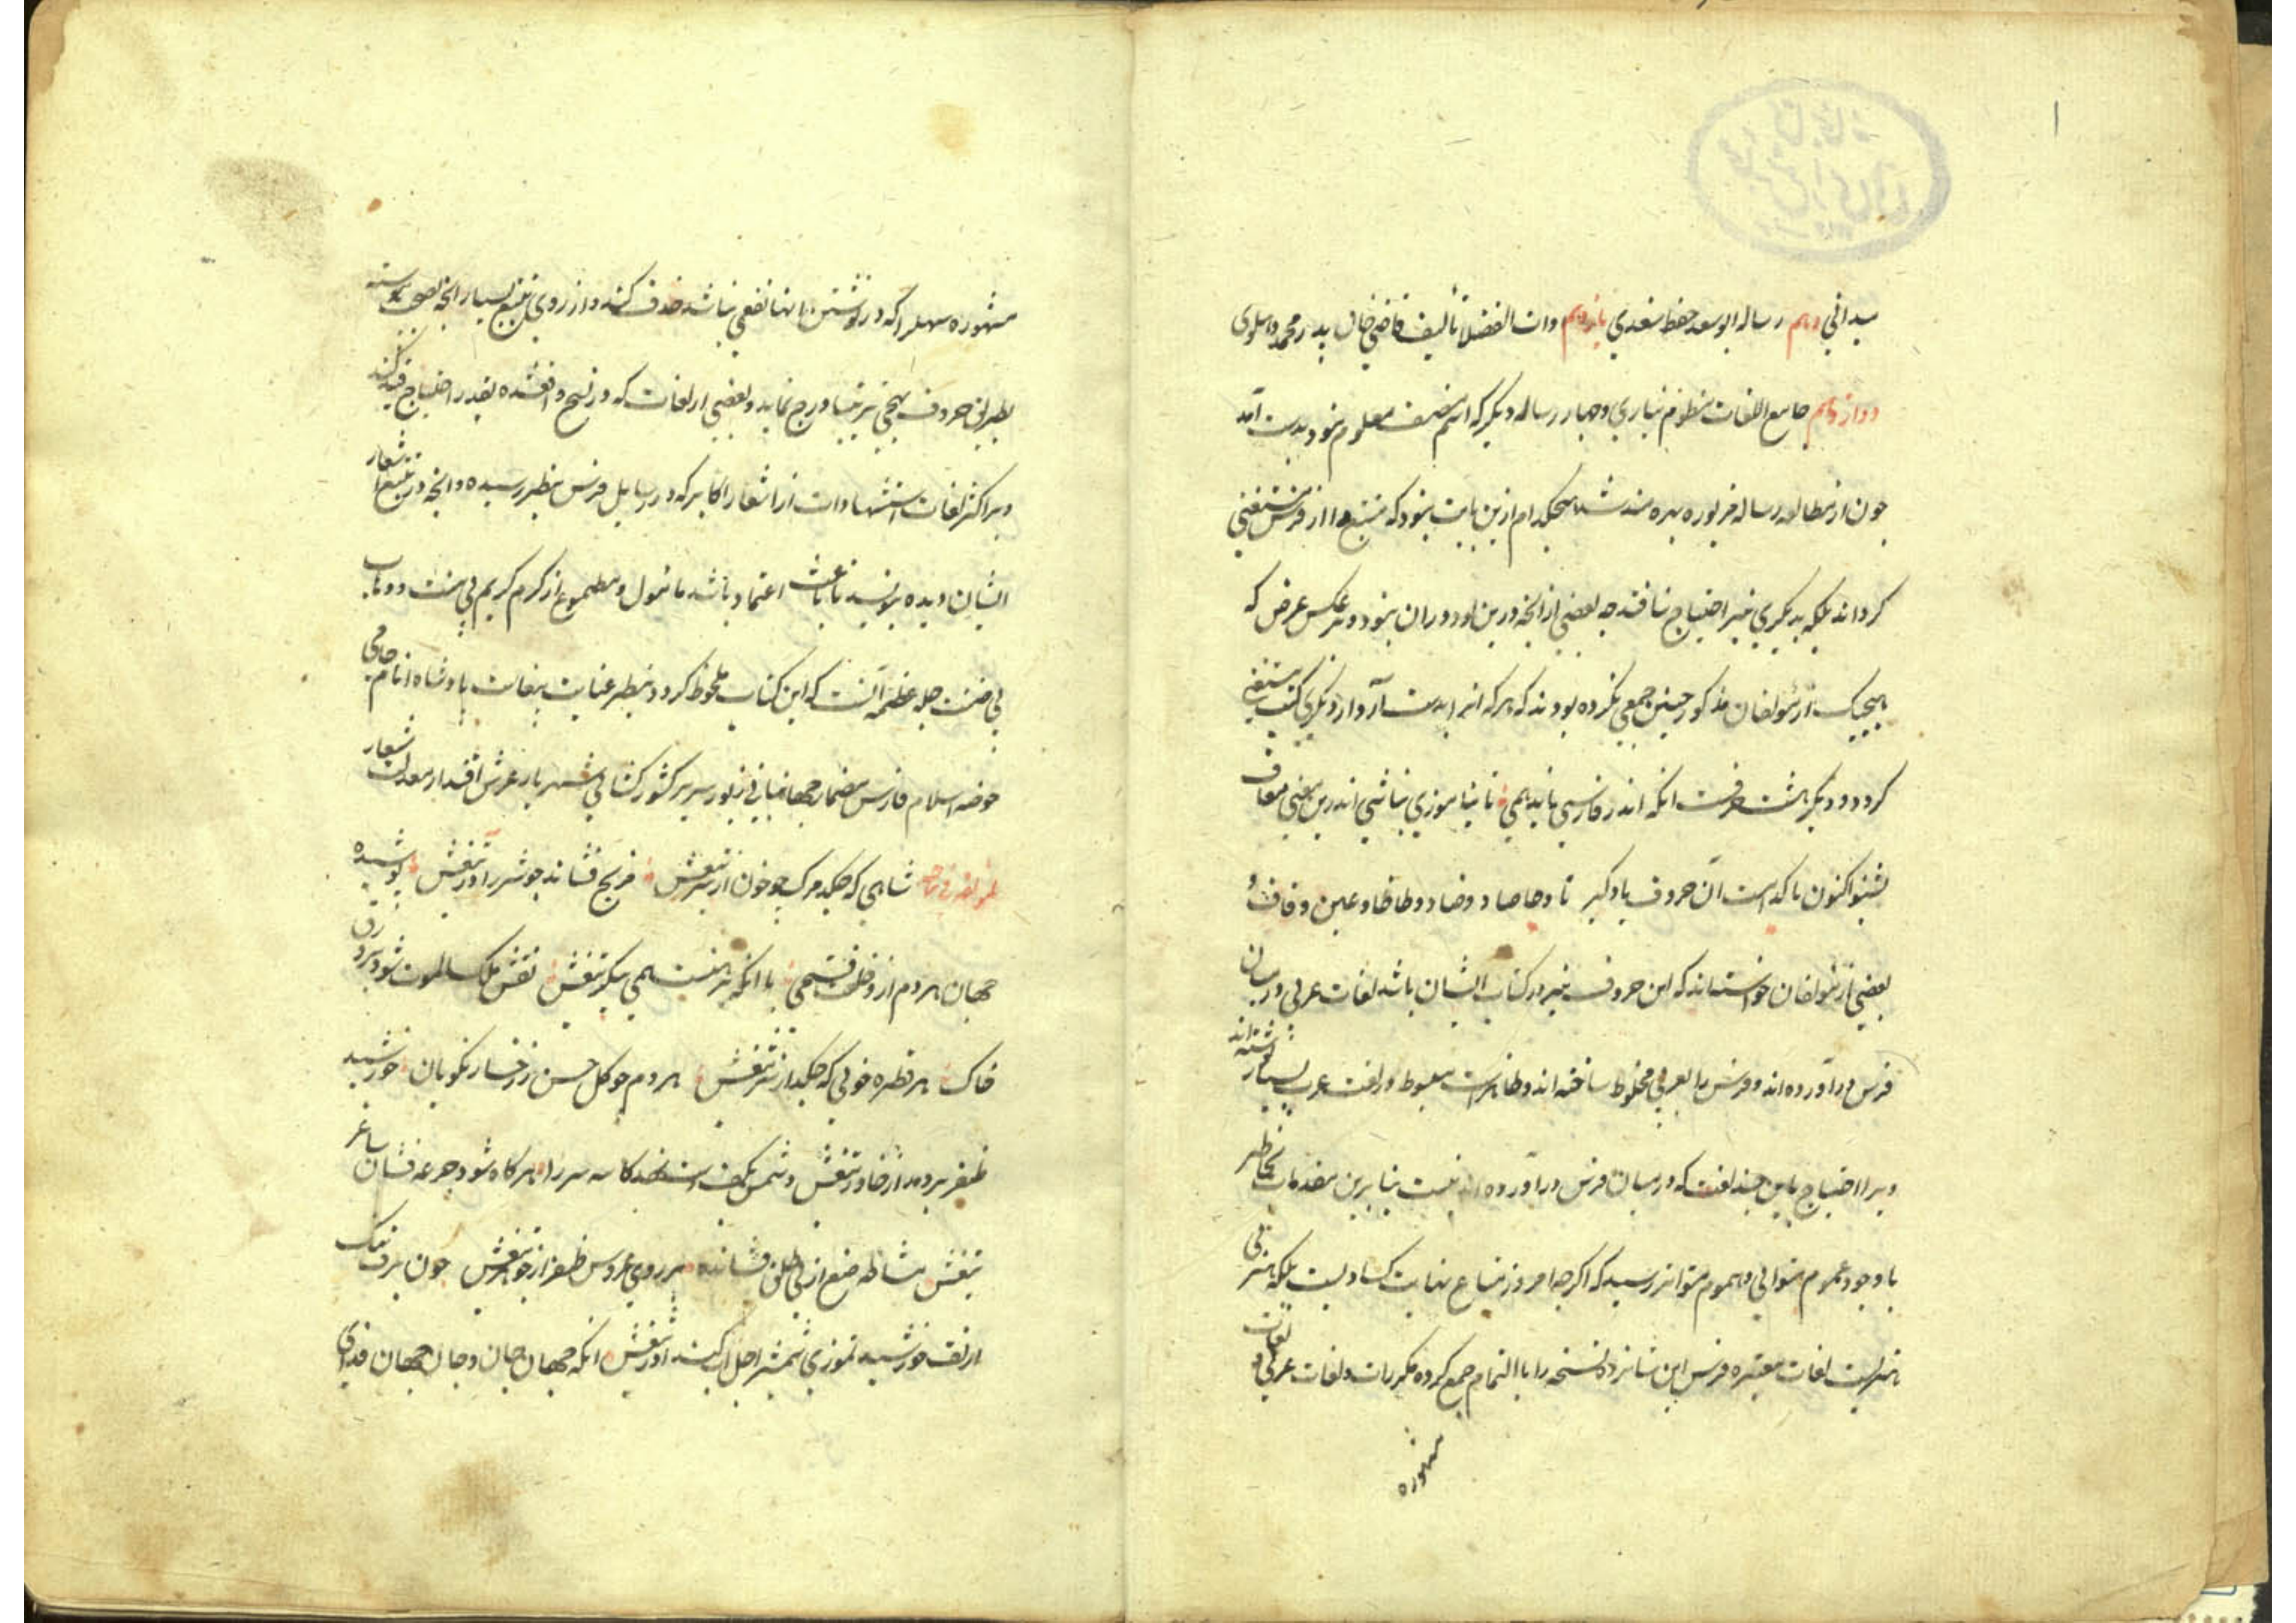 میدانی دهم رساله ابوسعد حفظ سغدی یازدهم دات الفضلا تألیف قاضی خان بدر محمد دهلوی
دوازدهم جامع اللغات منظوم نیازی و چهار رساله دیگر که اسم مصنف معلوم نبود بدست آمد
چون از مطالعه رساله مزبوره بهره مند شد هیچکدام ازین بابت نبود که متتبع را از فرس مستغنی
کرداند بلکه بدیکری نیز احتیاج نیافتد چه بعضی از انچه درین بود در ان نبود و بر عکس غرض که
هیچیک از مؤلفان مذکور چنین جمعی نکرده بودند که هر که انرا بدست آرد از دیگری کتب مستغنی
کردد و دیگر هشت حرفست انکه اندر فارسی ناید همی تا نیاموزی نباشی اندرین معنی معاف
بشنو اکنون تا کدامست آن حروف یاد گیر ثا و حا صاد و ضاد و طا ظا و عین و قاف
بعضی از مؤلفان خواسته اند که این حروف نیز در کتاب ایشان باشد لغات عربی در میان
فرس در آورده اند و فرس را بعربی مخلوط ساخته اند و ظاهرست مبسوط در لغت عرب بسیار نوشته اند
و برا احتیاج باین چند لغت که در میان فرس در آورده اند نیست بنابرین مقدمات بخاطر
با وجود عموم متوالی و هموم متواتر رسید که اگرچه امروز متاع بغایت کساد است بلکه هنر بی
هنریست لغات معتبره فرس این شانزده نسخه را با التمام جمع کرده مکررات و لغات عربی و لغات
مشهوره
مشهوره سهل را که در نوشتن انها نفعی نباشد حذف کند و از روی تتبع بسیار انچه بصحت پیوسته
بطریق حروف تهجی ترتیب درج نماید و بعضی از لغات که در نسخ واقع شده بقدر احتیاج قید کند
و بر اکثر لغات استشهادات از اشعار اکابر که در رسایل فرس بنظر رسیده و انچه در تتبع اشعار
ایشان دیده بنویسد تا باعث اعتماد باشد مامول و مطموع از کرم کریم بی منت و وهاب
بی ضنت جلّ عظمه آنست که این کتاب ملحوظ کردد بنظر عنایت بغایت پادشاه انام حامی
حوضه اسلام فارس مضمار جهانبانی زیور سریر کشور کشایی شهریار عرش اقتدار معدلت شعار
لمؤلفه فی مدحه شاهی که چکد مرک چو خون از سر تیغش مریخ فشاند چو شرر آذر تیغش پوشیده
جهان هردم از و خلعت فتحی با انکه برهنست همی پیکر تیغش نقش ملک الموت شود بر ورق
خاک هر قطره خونی که چکد از سر تیغش هردم چو کل حسن ز رخسار نکویان خورشید
ظفر بر دمد از خاور تیغش دشمن بکف کاسه سر را هر کاه شود جرعه فشان ساغر
تیغش مشاطه صنع ازلی فشانده بر روی عروس ظفر از جوهر تیغش چون برف تنک
از تف خورشید تموزی شمشیر اجل آب کند آذر تیغش انکه جهان جان و جان جهان فدای